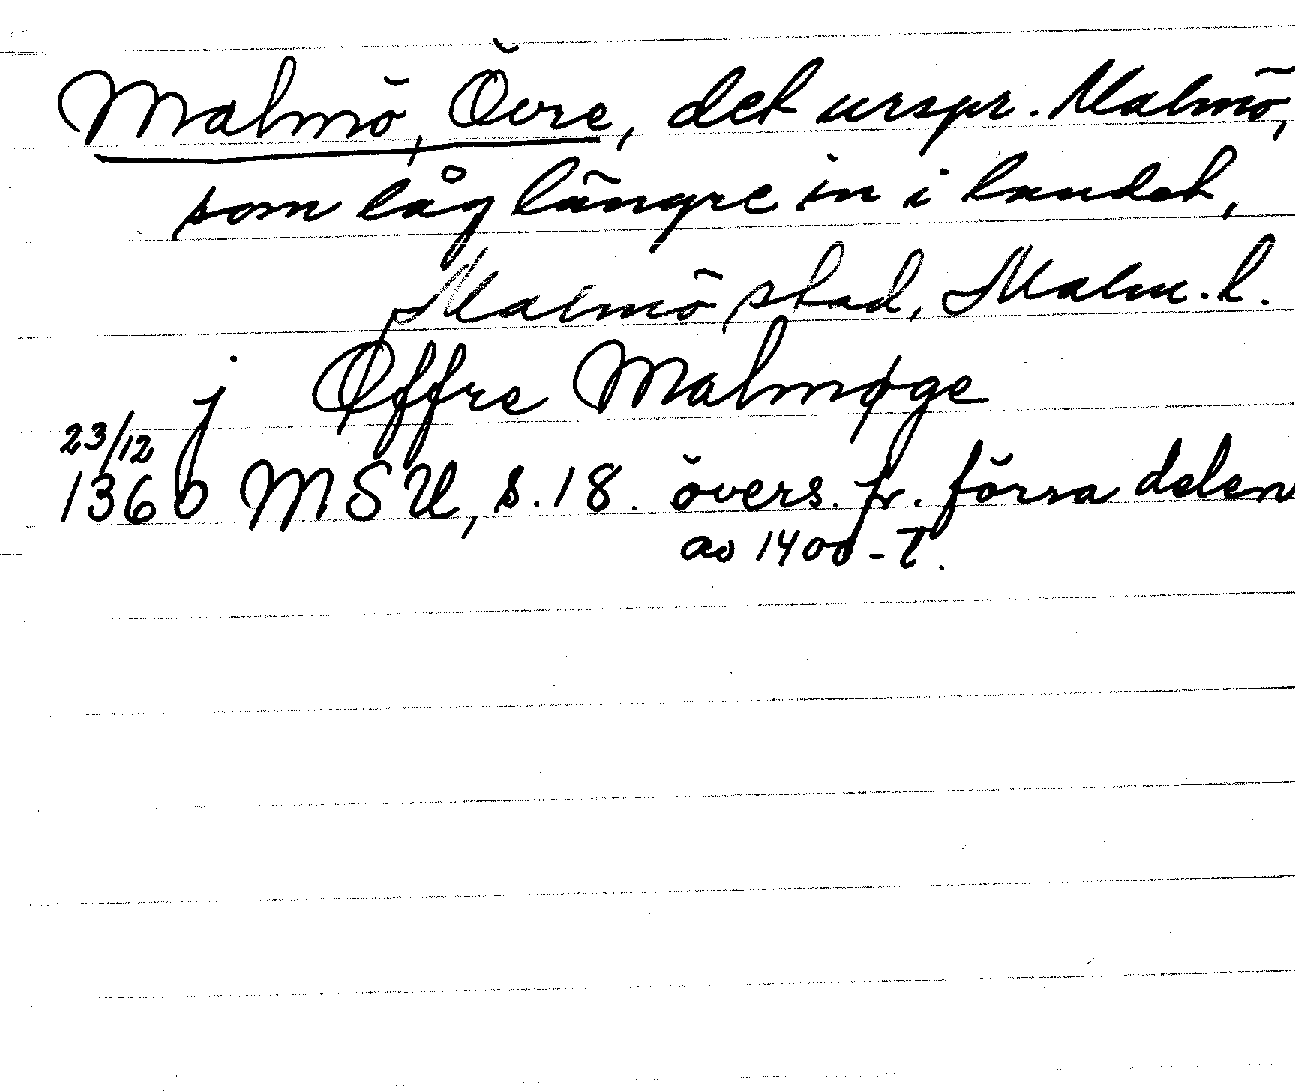 Malmö, Övre, det urspr. Malmö,
som låg längre in i landet,
Malmö stad, Malm. l.
j Øffre Malmøge
23/12
1360 MSU, s. 18. övers. fr. förra delen
av 1400-T.